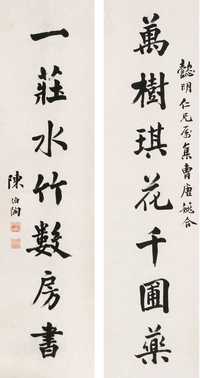 懿明仁兄属集曹唐姚合
萬樹琪花千圃藥
一莊水竹數房書
陳伯陶